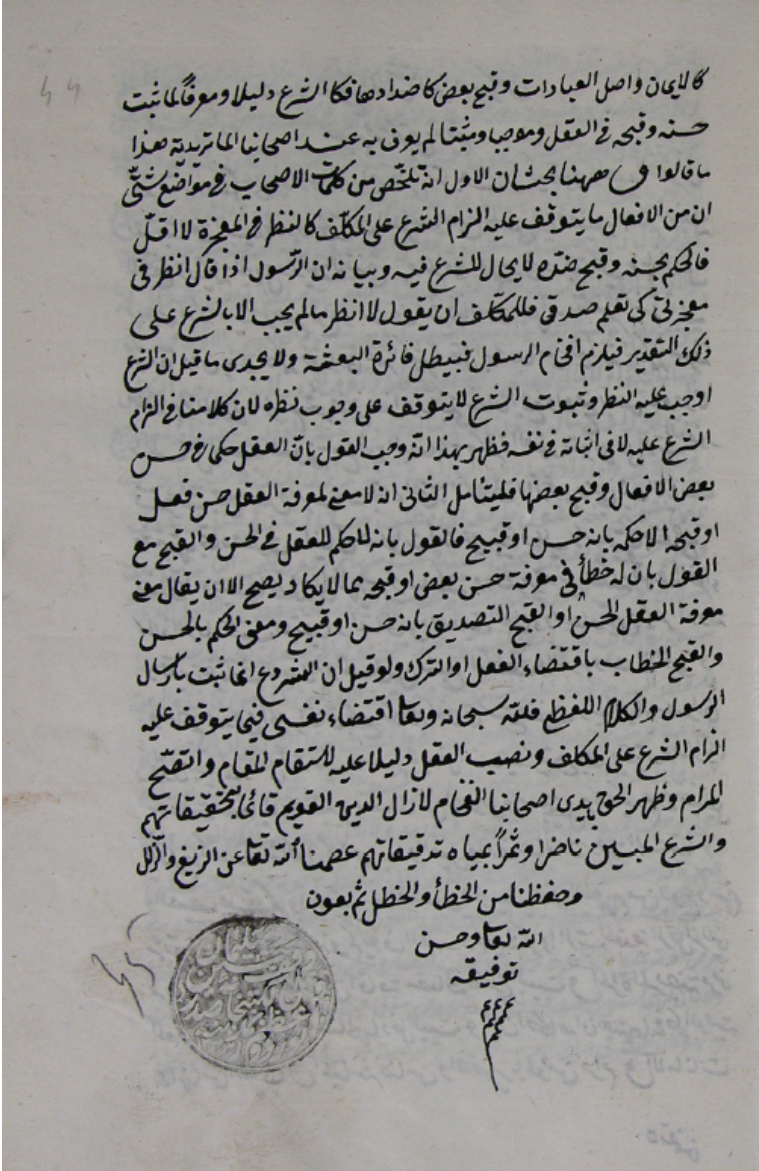 كالايمان واصل العبادات وقبح بعض كاضدادها فكان الشرع دليلا ومعرفا لما ثبت
حسنه وقبحه في العقل وموجبا ومثبتا لما لم يعرف به عند اصحابنا الماتريدية هذا
ما قالوا وههنا بحثان الاول انه تلخص من كلمات الاصحاب في مواضع شتى
ان من الافعال ما يتوقف عليه الزام الشرع على المكلف كالنظر في المعجزة لا اقل
فالحكم بحسنه وقبح ضده لا يحال للشرع فيه وبيانه ان الرسول اذا قال انظر في
معجزتي كي تعلم صدقي فللمكلف ان يقول لا انظر ما لم يجب الا بالشرع على
ذلك التقدير فيلزم افحام الرسول فيبطل فائدة البعثة ولا يجدى ما قيل ان الشرع
اوجب عليه النظر وثبوت الشرع لا يتوقف على وجوب نظره لان كلامنا في الزام
الشرع عليه لا في اثباته في نفسه فظهر بهذا انه وجب القول بان العقل حكما في حسن
بعض الافعال وقبح بعضها فليتأمل الثاني انه لا معنى لمعرفة العقل حسن فعل
او قبحه الا حكمه بانه حسن او قبيح فالقول بانه لا حكم للعقل في الحسن والقبح مع
القول بان له خطأ في معرفة حسن بعض او قبحه مما لا يكاد يصح الا ان يقال معنى
معرفة العقل الحسن او القبح التصديق بانه حسن او قبيح ومعنى الحكم بالحسن
والقبح الخطاب باقتضاء الفعل او الترك ولو قيل ان المشروع انما ثبت بارسال
الرسول والكلام اللفظي فلله سبحانه وتعا اقتضاء نفسى فيما يتوقف عليه
الزام الشرع على المكلف ونصب العقل دليلا عليه لاستقام المقام واتضح
المرام وظهر الحق بيدى اصحابنا الفخام لا زال الدين القويم قائما بتحقيقاتهم
والشرع المبين ناضرا ومثمرا بمياه تدقيقاتهم عصمنا الله تعا عن الزيغ والزلل
وحفظنا من الخطأ والخطل تم بعون
الله تعا وحسن
توفيقه